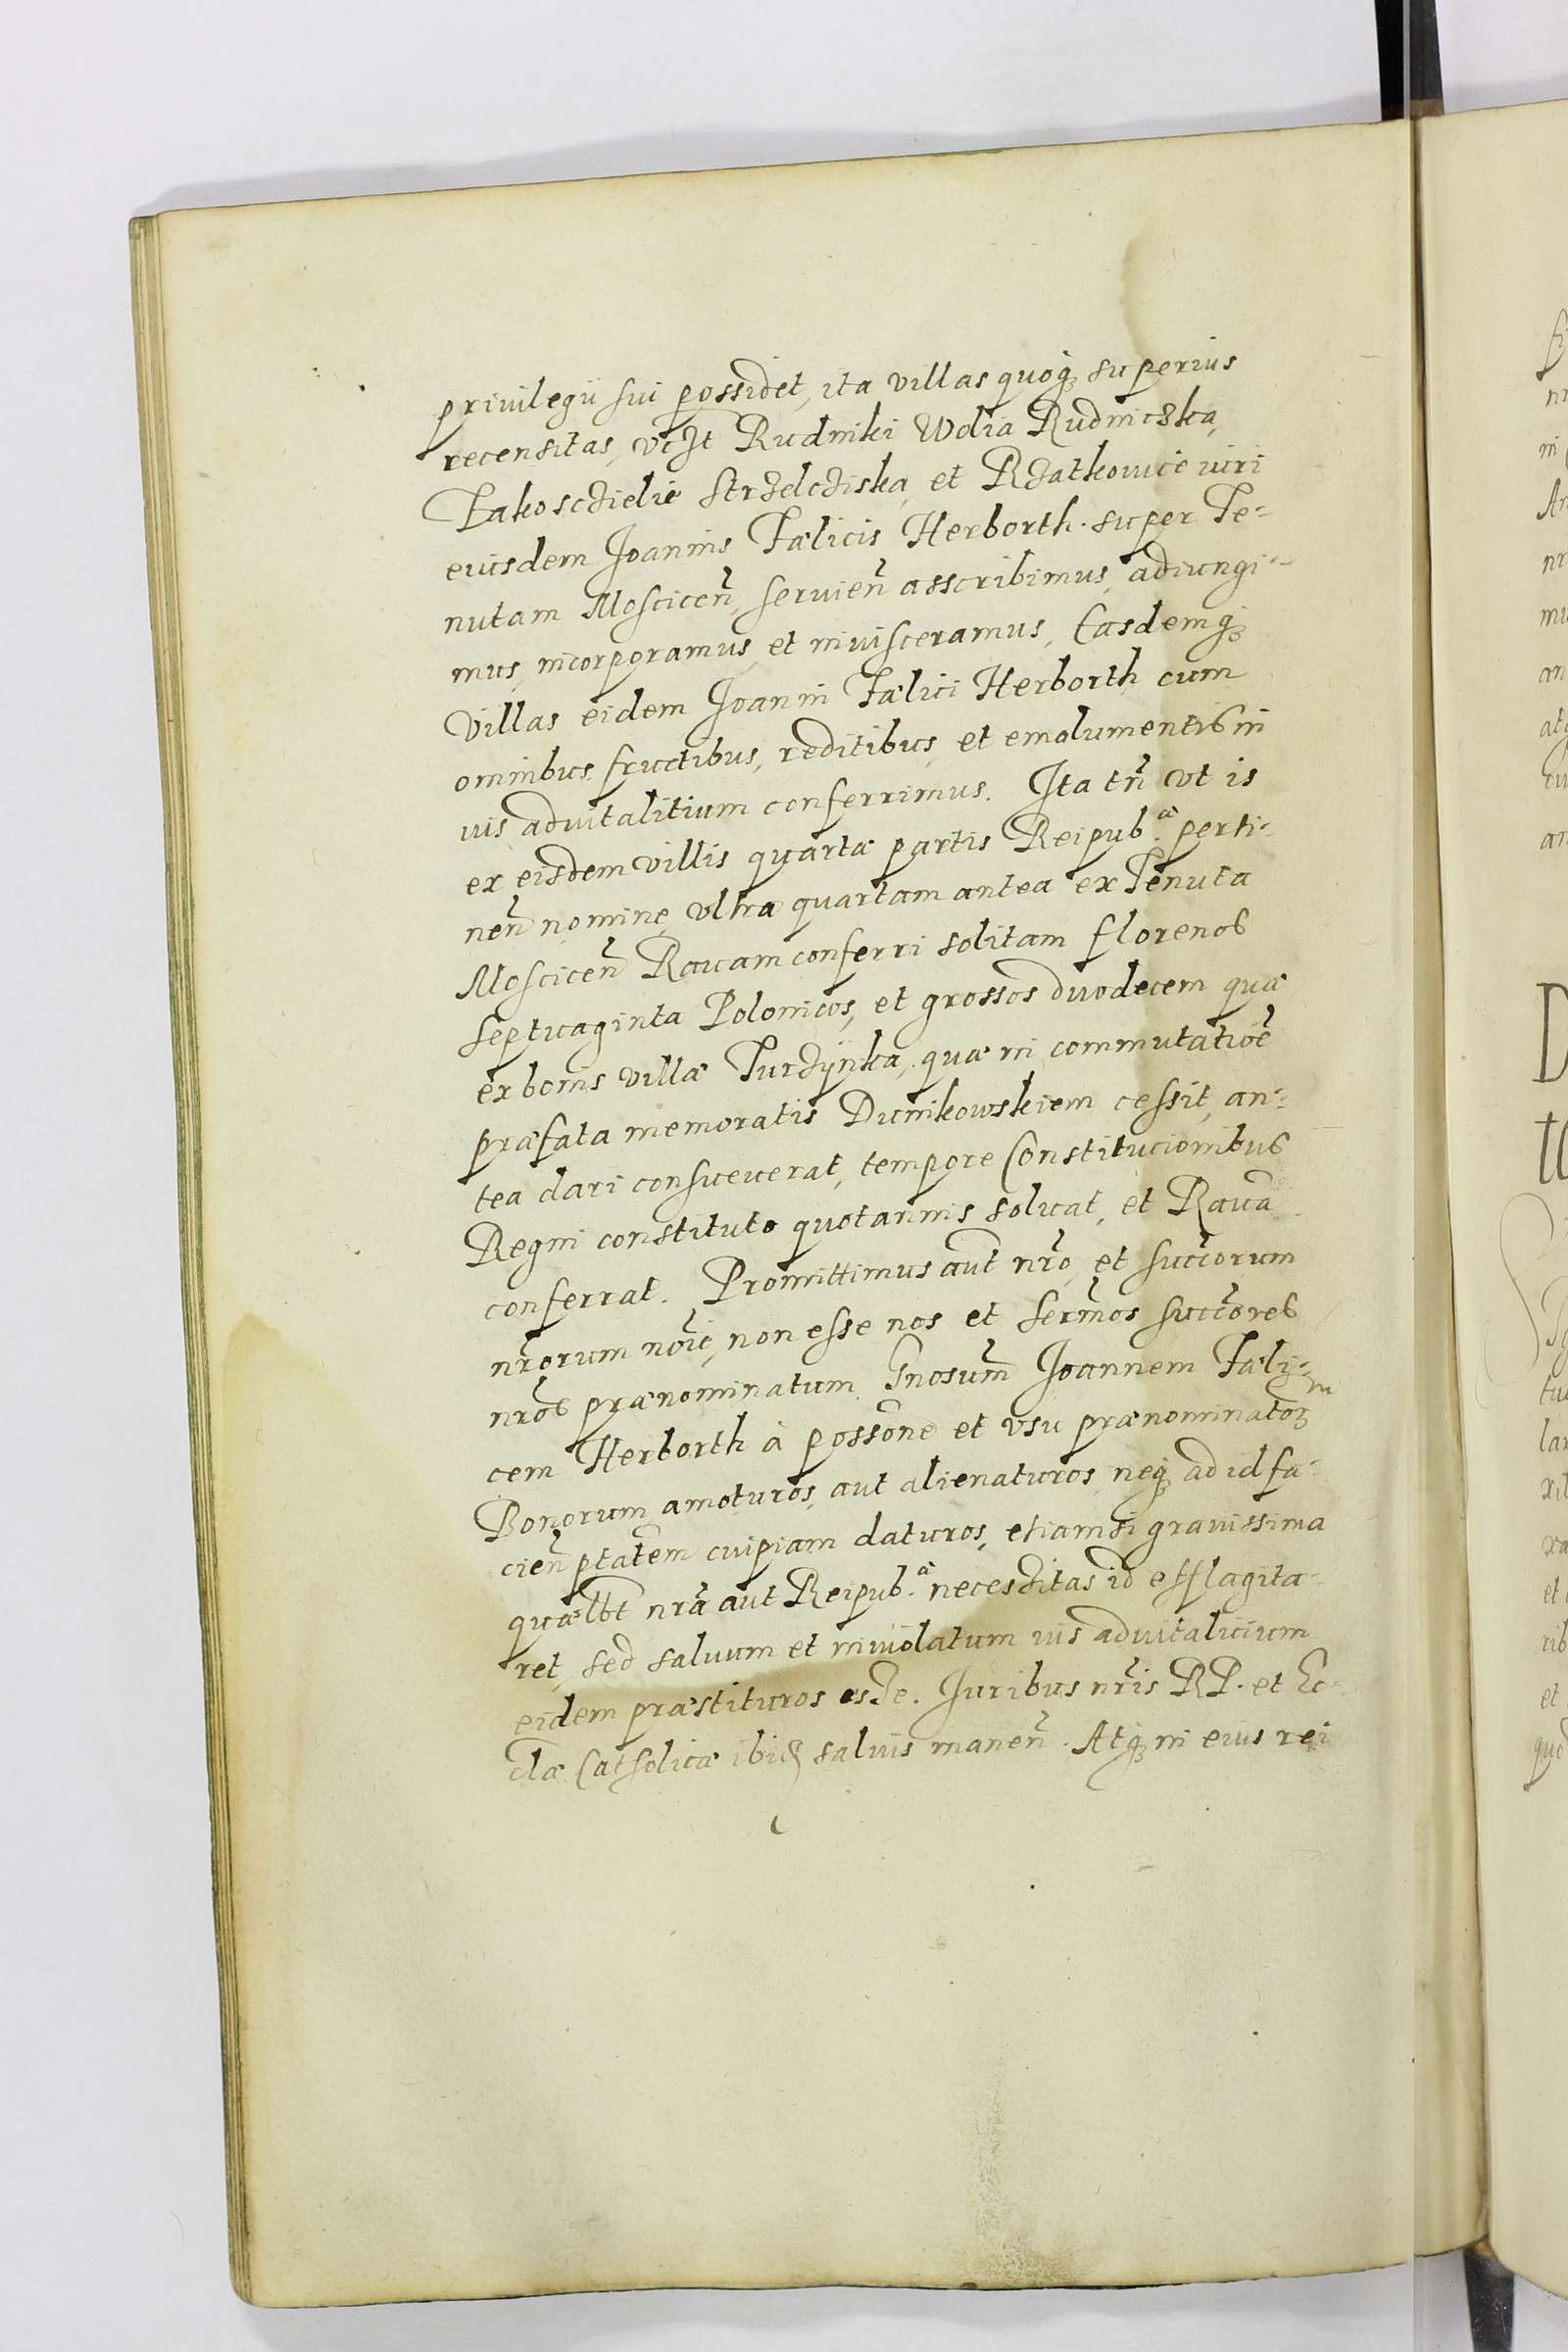 privilegii sui possidet, ita villas quoq̨ superius
recensitas, vt Rudniki Wolia Rudniczka,
Strzelcziska, et Rzatkovice iuri
eiusdem Joannis Fælicis Herborth super Te-
nutam Moscicen̄, servien̄ asscribimus, adiungi-
mus, incorporamus, et invisceramus, Easdemq̨
villas eidem Joanni Fælici Herborth cum
omnibus fructibus, reditibus, et emolumentis in
ius advitalitium conferrimus. Ita tn̄ vt is
ex eisdem villis quartæ partis Reipub.æ perti-
nen̄ nomine, vltra quartam antea ex Tenuta
Moscicen̄ Ravam conferri solitam florenos
septuaginta Polonicos, et grossos duodecem quæ
ex bonis villæ Turzynka, quæ in commutatiōe
præfata memoratis Dunikowskiem cessit, an-
tea dari consueverat, tempore Constitucionibus
Regni constituto quotannis solvat, et Ravā
conferrat. Promittimus aūt nr̄o, et succ̄orum
nr̄orum nōīe, non esse nos et Serm̄os succ̄ores
nr̄os prænominatum Gnosum̄ Joannem Fæli-
cem Herborth à possōne et vsu prænominatorum
Bonorum amoturos, aut alienaturos, neq̨ ad id fa-
cien̄ ptātem cuipiam daturos, etiamsi gravissima
quælb̄t nr̄a aut Reipub.æ necessitas id efflagita-
ret, sed salvum et inviolatum ius advitalicium
eidem præstituros esse. Juribus nr̄is RP. et Ec-
clæ Catholicæ ibid̨ salvis manen̄. Atq̨ in eius rei